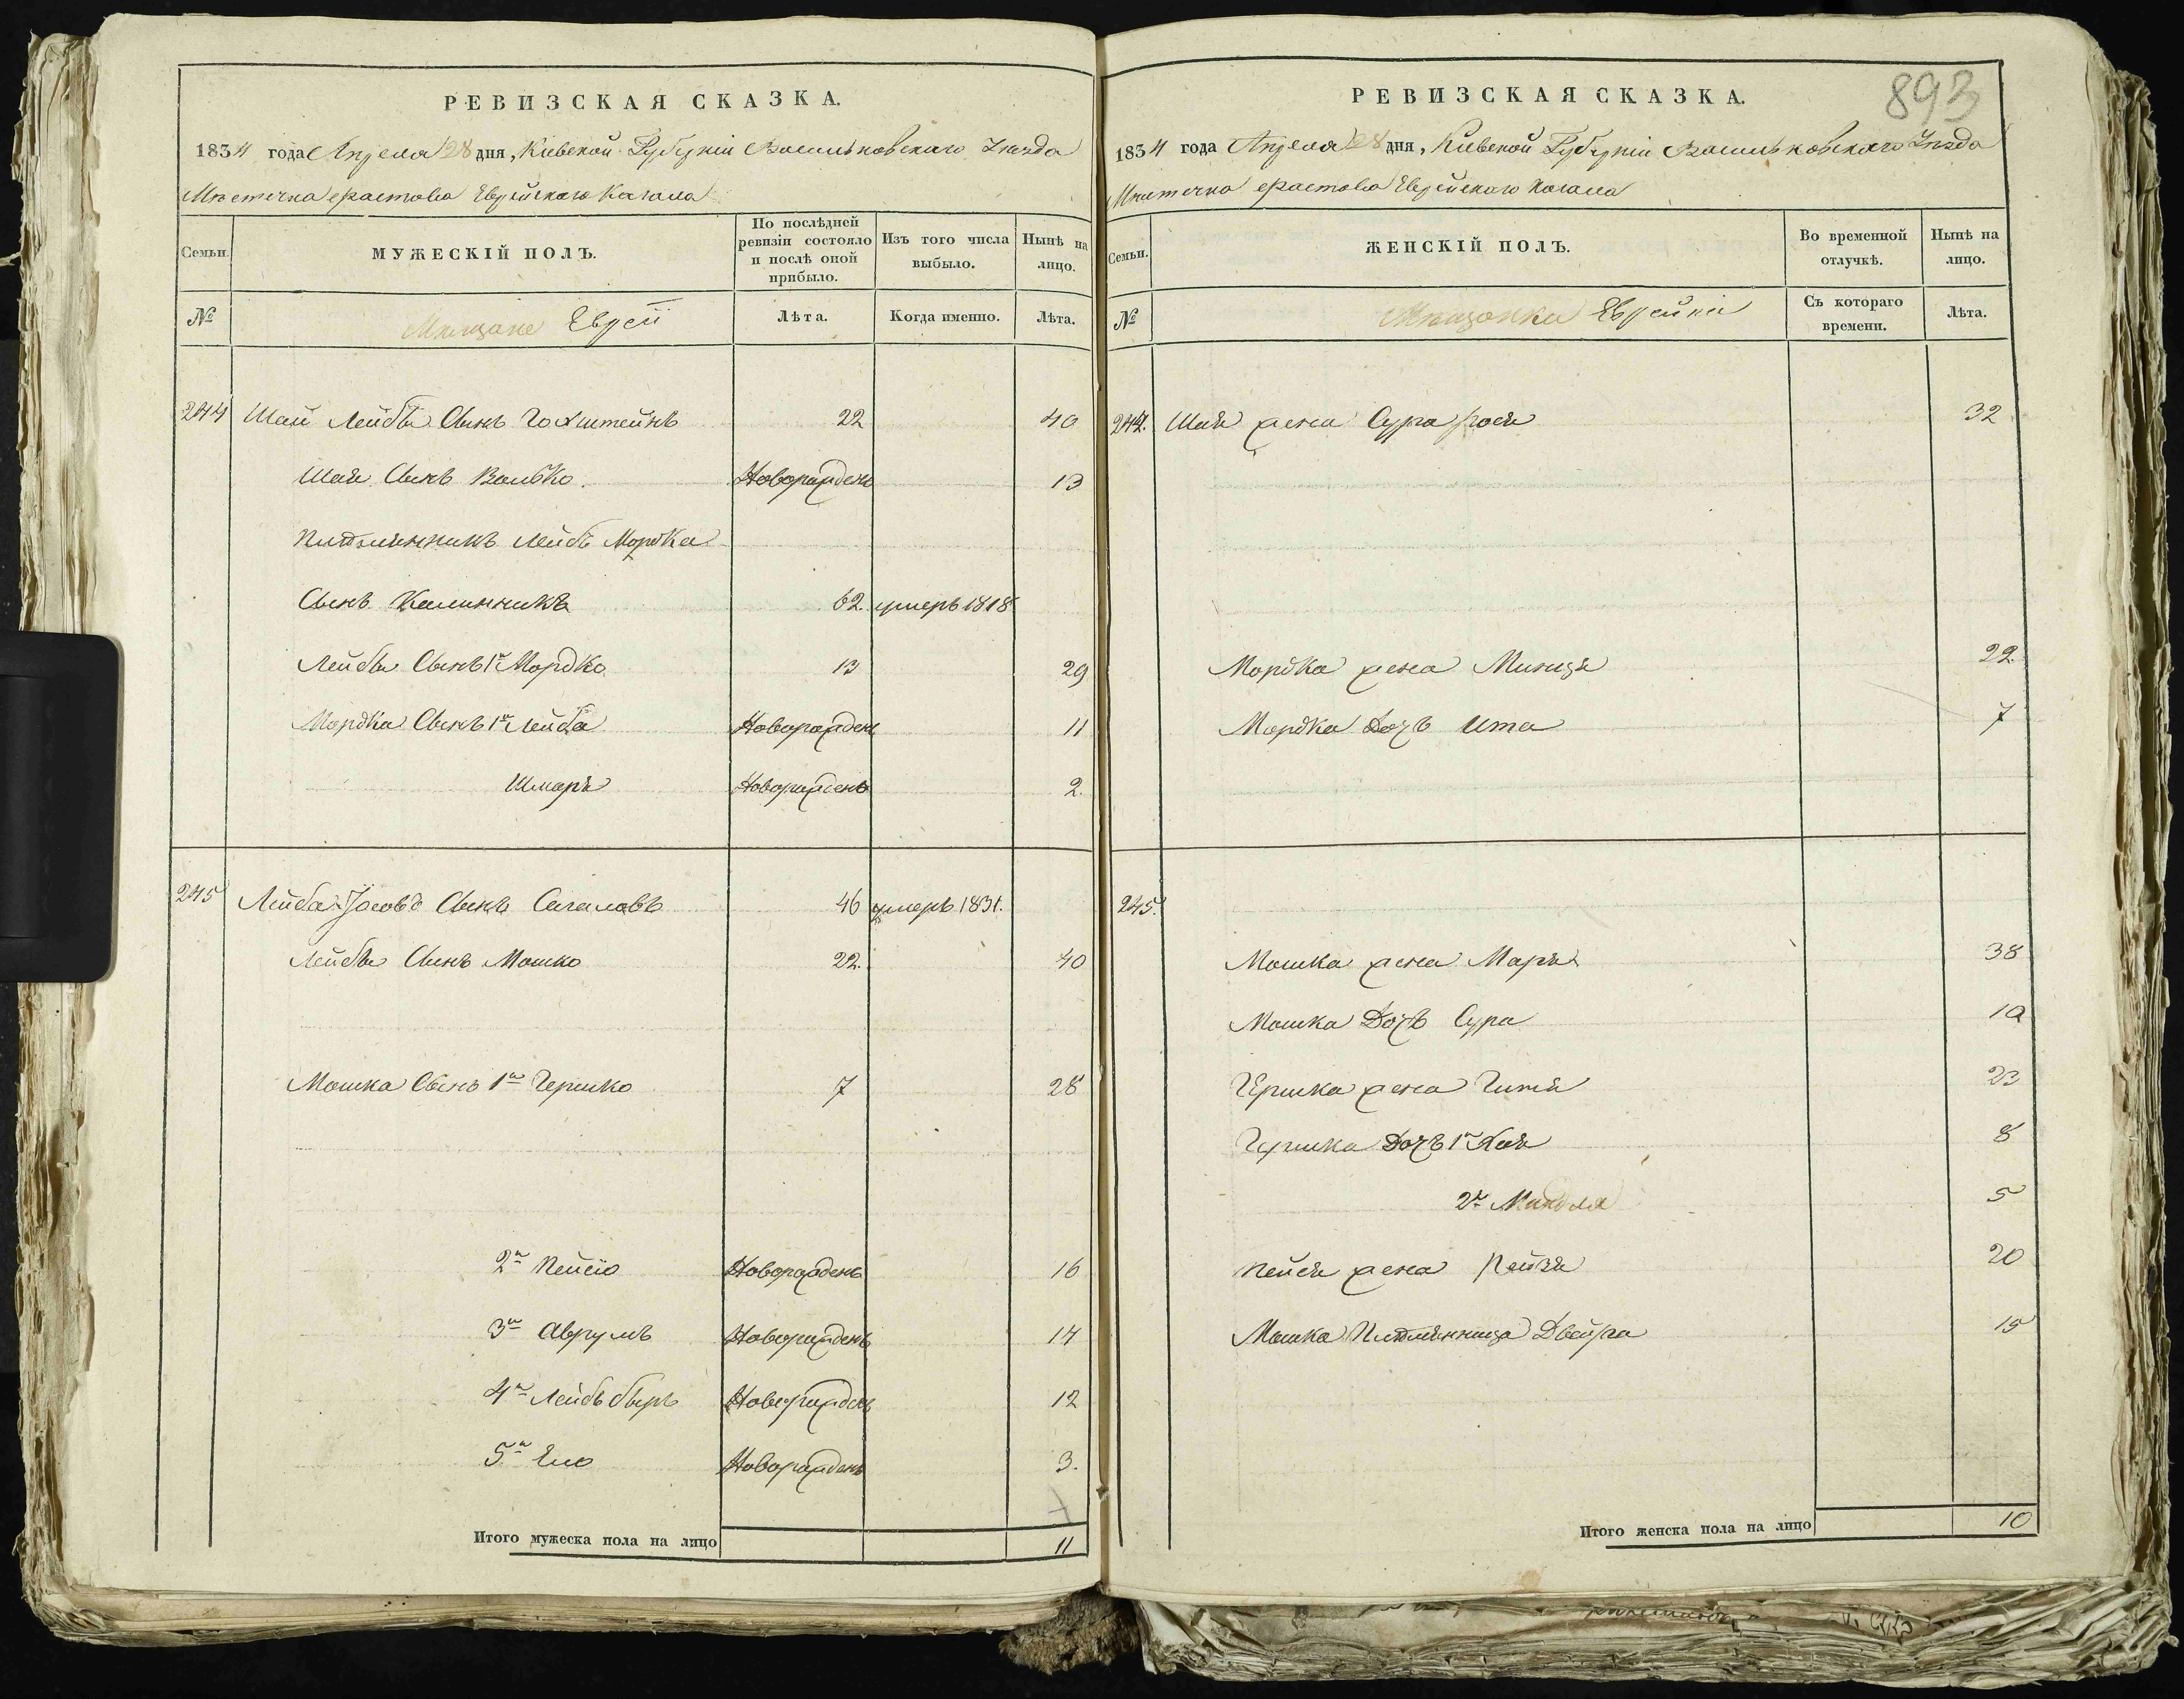 РЕВИЗСКАЯ СКАЗКА.
1834 года Апреля 28 дня, Киевской Губернiи Васильковскаго Уезда
Местечка Фастова Еврейскаго Кагала
Семьи.
МУЖЕСКІЙ ПОЛЪ.
По послѣдней ревизіи состояло и послѣ оной прибыло.
Изъ того числа выбыло.
Нынѣ на лицо.
№
Мещане Евреи
Лѣта.
Когда именно.
Лѣта.
244 Шая Лейбы Сынъ Гохштейнъ 22 40
Шаи Сынъ Волько. Новорожденъ 13
Племянникъ Лейба Мордка
Сынъ 62. умеръ 1818
Лейбы Сынъ 1й Мордко 13 29
Мордка Сынъ 1й Лейба Новорожденъ 11
Шмаря Новорожденъ 2.
245 Лейба Іосевъ Сынъ Сигаловъ 46 умеръ 1831.
Лейбы Сынъ Мошко 22. 40
Мошка Сынъ 1й Гершко 7 28
2й Пейсіо Новорожденъ 16
3й Аврумъ Новорожденъ 14
4й Лейбъ беръ Новорожденъ 12
5й Ело Новорожденъ 3.
Итого мужеска пола на лицо 11
893
РЕВИЗСКАЯ СКАЗКА.
1834 года Апреля 28 дня, Киевской Губернiи Васильковскаго Уезда
Местечка Фастова Еврейскаго Кагала
Семьи.
ЖЕНСКІЙ ПОЛЪ.
Во временной отлучкѣ.
Нынѣ на лицо.
№
Мещанки Еврейки
Съ котораго времени.
Лѣта.
244. Шаи жена Сура 32
Мордка жена Минця 22.
Мордка Дочь Ита 7
245.
Мошка жена Маря 38
Мошка Дочь Сура 10
Гершка жена Гитя 23
Гершка Дочь 1я Хая 8
2я 5
Пейси жена Рейзя 20
Мошка Племянница Двейра 15
Итого женска пола на лицо 10